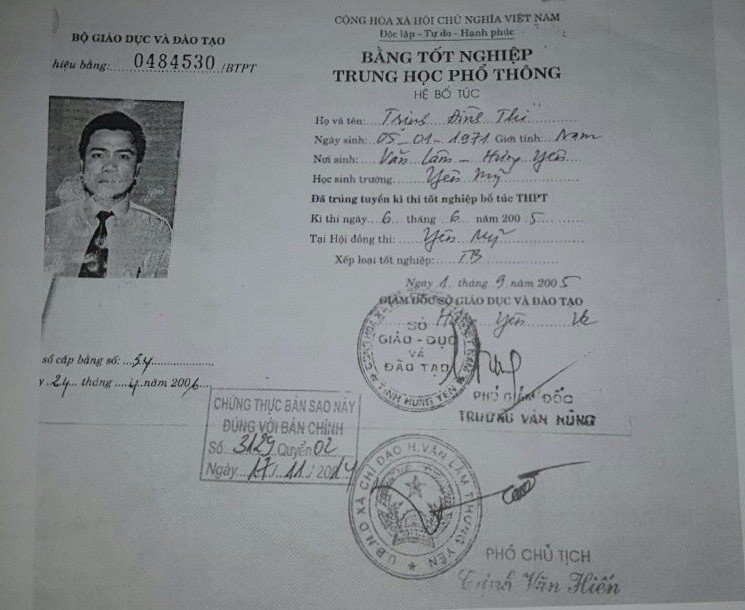 BỘ GIÁO DỤC VÀ ĐÀO TẠO
hiệu bằng: 0484530 /BTPT
CỘNG HÒA XÃ HỘI CHỦ NGHĨA VIỆT NAM
Độc lập - Tự do - Hạnh phúc
BẰNG TỐT NGHIỆP
TRUNG HỌC PHỔ THÔNG
HỆ BỔ TÚC
Họ và tên: Trịnh Đình Thi
Ngày sinh: 05-01-1971 Giới tính: Nam
Nơi sinh: Văn Lâm - Hưng Yên
Học sinh trường: Yên Mỹ
Đã trúng tuyển kì thi tốt nghiệp bổ túc THPT
Kì thi ngày 6 tháng 6 năm 2005
Tại Hội đồng thi: Yên Mỹ
Xếp loại tốt nghiệp: TB
Ngày 1 tháng 9 năm 2005
GIÁM ĐỐC SỞ GIÁO DỤC VÀ ĐÀO TẠO
Hưng Yên
SỞ
GIÁO - DỤC
VÀ
ĐÀO TẠO
TỈNH HƯNG YÊN
PHÓ GIÁM ĐỐC
TRƯƠNG VĂN HÙNG
số cấp bằng số: 54
24 tháng 4 năm 2006
CHỨNG THỰC BẢN SAO NÀY
ĐÚNG VỚI BẢN CHÍNH
Số 3129 Quyển 02
Ngày 17/11/2014
U.B.N.D XÃ CHỈ ĐẠO H.VĂN LÂM T.HƯNG YÊN
PHÓ CHỦ TỊCH
Trịnh Văn Hiến